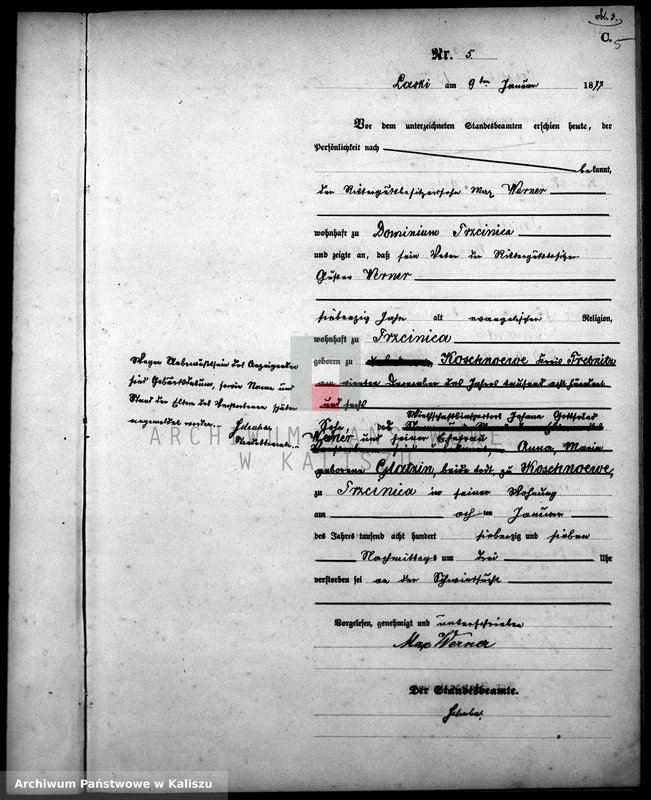 C. 5
Nr. 5
Laski am 9ten Januar 1877
Vor dem unterzeichneten Standesbeamten erschien heute, der
Persönlichkeit nach
bekannt,
der Rittergutsbesitzersohn Max Werner
wohnhaft zu Dominium Trzcinica
und zeigte an, daß sein Vater der Rittergutsbesitzer
Gustav Werner
siebenzig Jahr alt evangelischer Religion,
wohnhaft zu Trzcinica
geboren zu Koschnoewe Kreis Trebnitz
am vierten December des Jahres tausend acht hundert
und sechs
Wirthschaftsinspectors Johann Gottfried
Sohn des
Werner und seiner Ehefrau Anna, Maria
geborene Glatzin, beide todt, zu Koschnoewe,
zu Trzcinica in seiner Wohnung
am acht ten Januar
des Jahres tausend acht hundert siebenzig und sieben
Nachmittags um drei Uhr
verstorben sei an der Schwindsucht
Vorgelesen, genehmigt und unterschrieben
Max Werner
Der Standesbeamte.
Wegen Unbewußtsein des Anzeigenden
sind Geburtsdatum, sowie Name und
Stand der Eltern des Verstorbenen später
nachgemeldet worden.
Standesbeamte
ARCHIWUM PAŃSTWOWE
W KALISZU
Archiwum Państwowe w Kaliszu